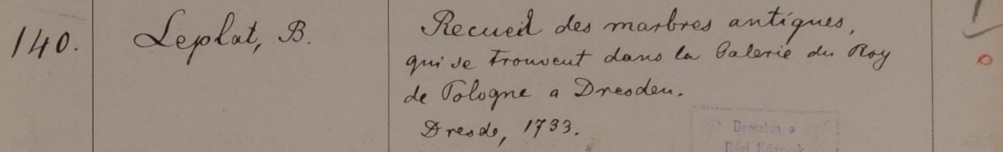 140. Leplat, B. Recueil des marbres antiques,
qui se trouvent dans la Galerie du Roy
de Pologne a Dresden.
Dresde, 1733.